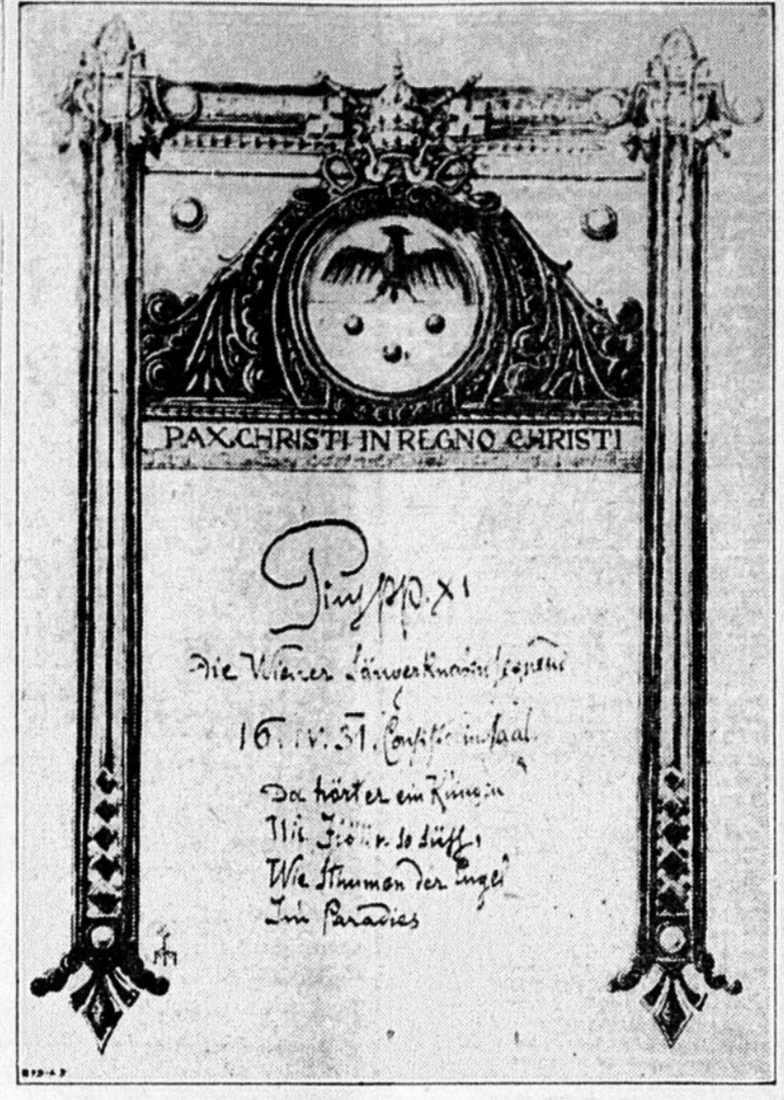 PAX CHRISTI IN REGNO CHRISTI
Pius pp. XI
Die Wiener Sängerknaben segnend
16. IV. 31. Consistorialsaal.
Da hört er ein Klingen
Wie so süß,
Wie Stimmen der Engel
Im Paradies